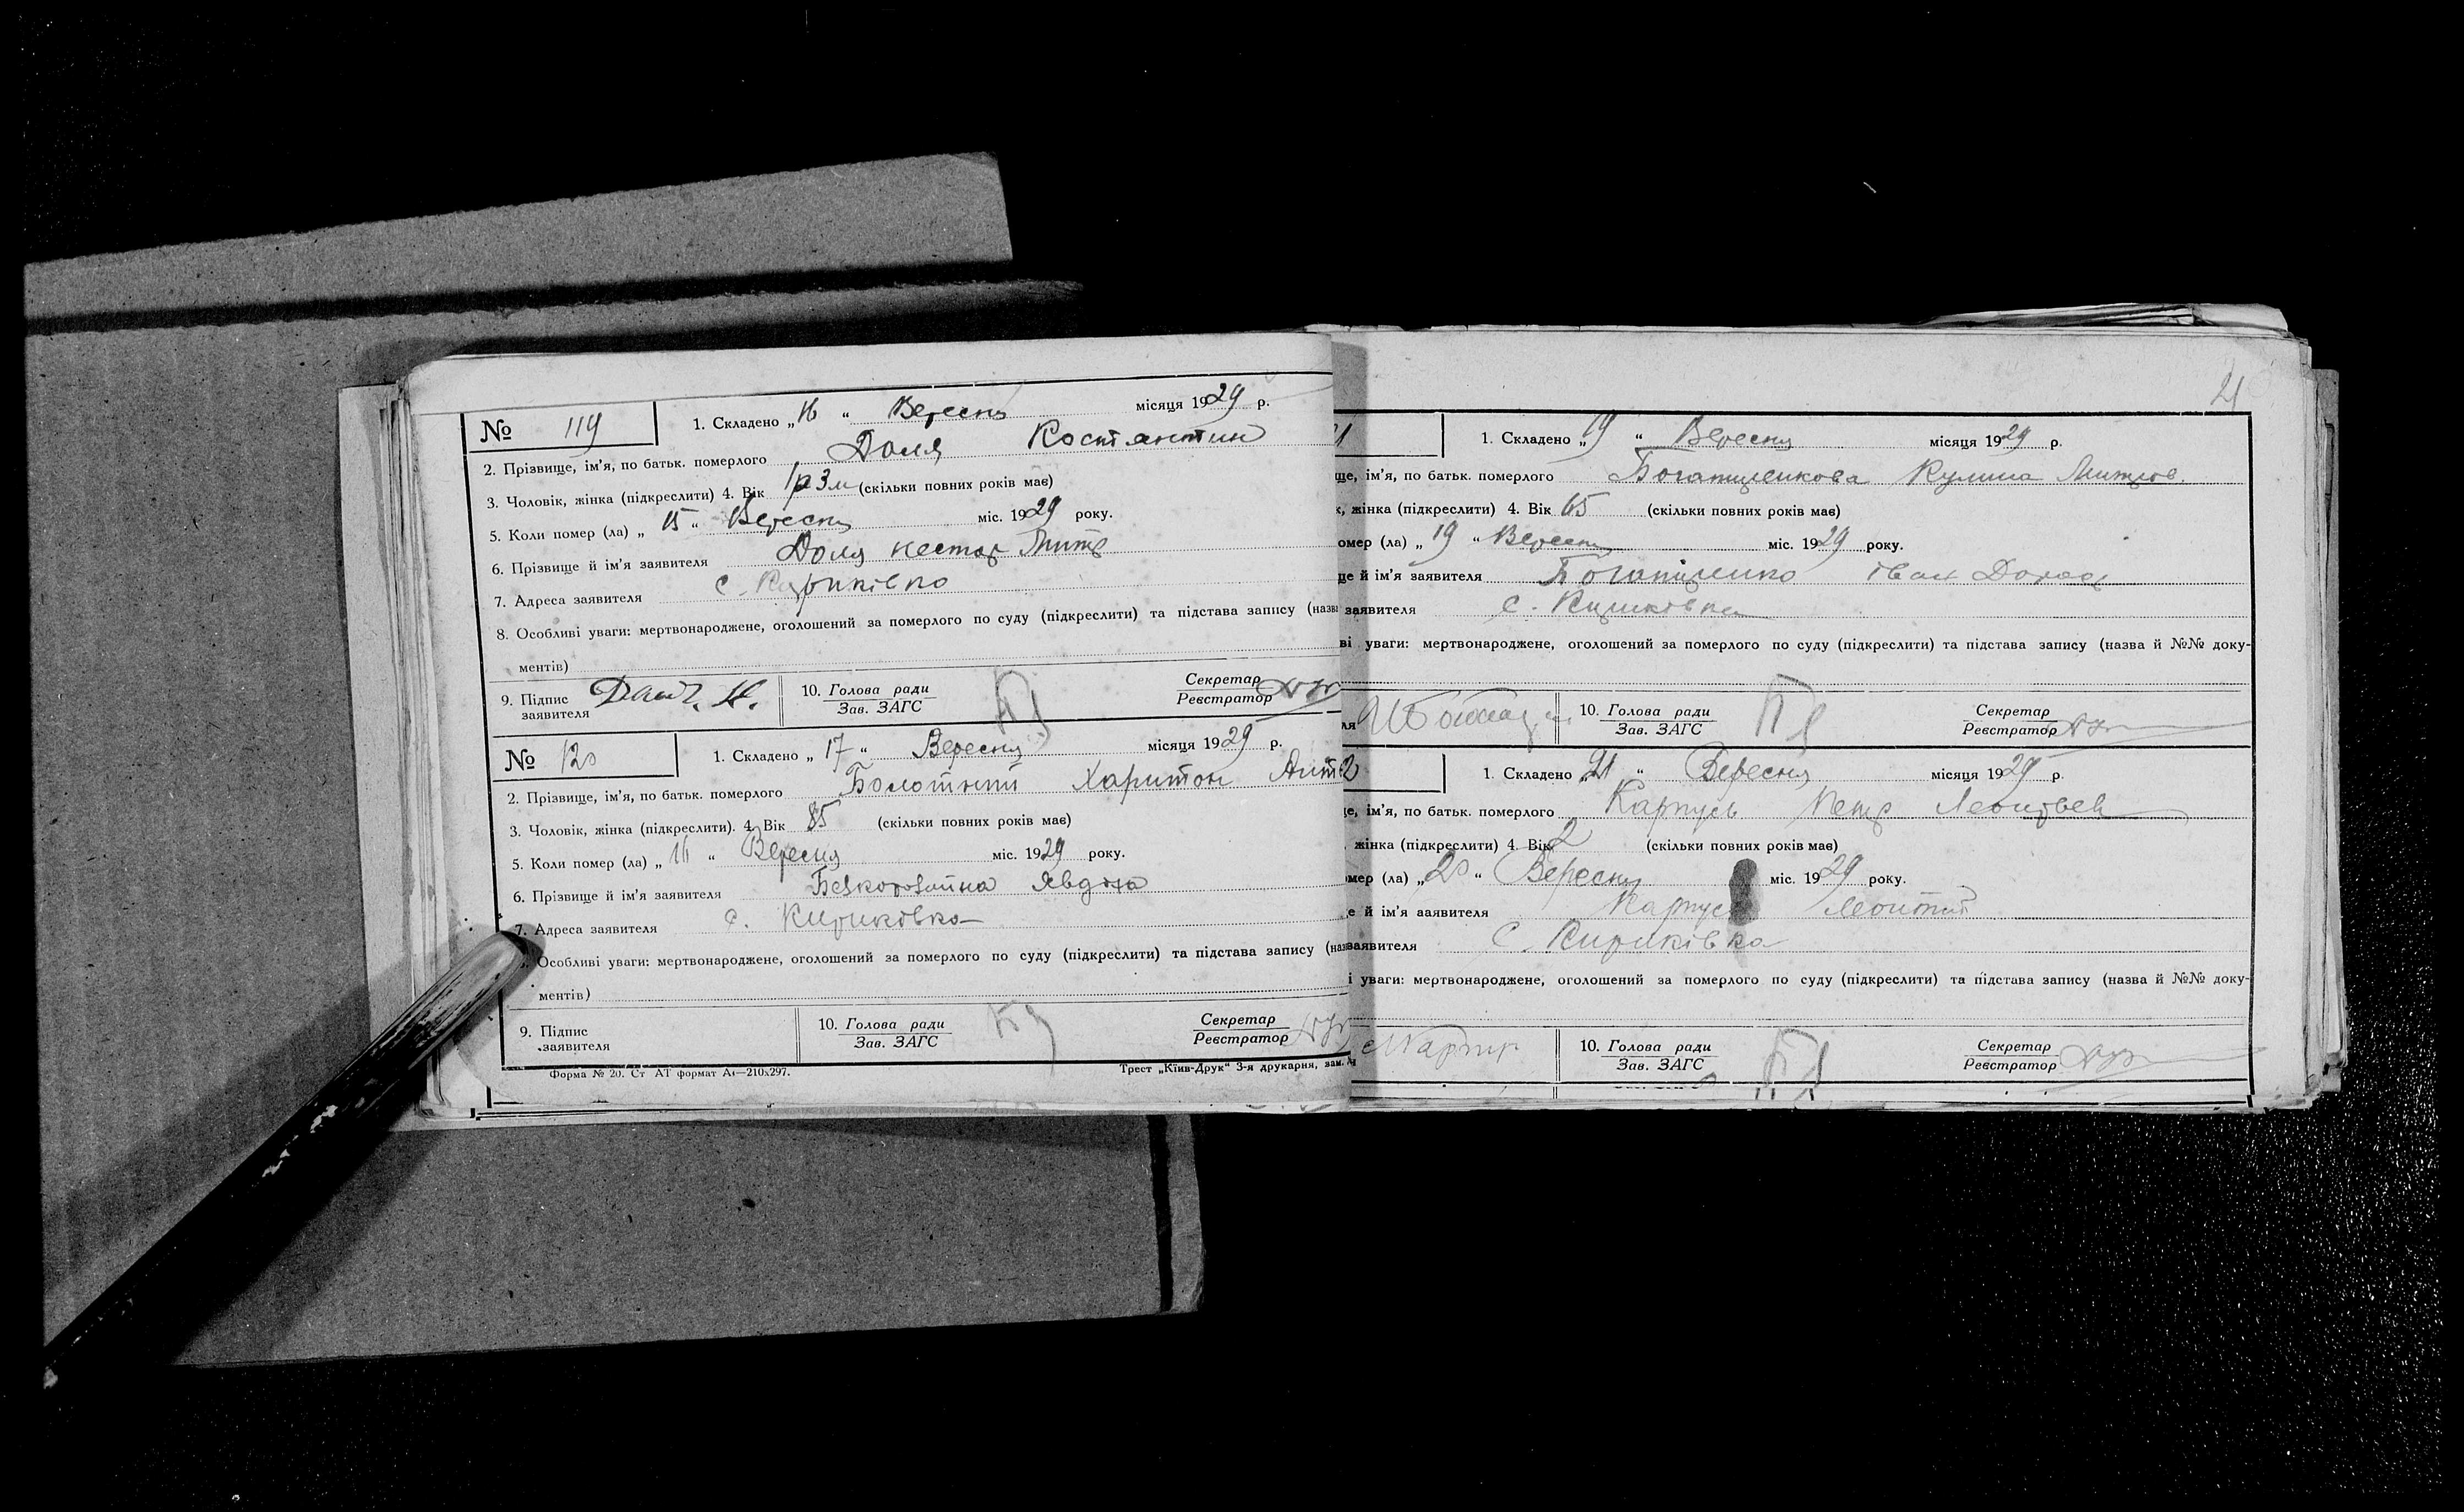 № 119 1. Складено „16 “ Вересня місяця 1929 р.
2. Прізвище, ім'я, по батьк. померлого Доля Костянтин
3. Чоловік, жінка (підкреслити) 4. Вік 1р 3м (скільки повних років має)
5. Коли помер (ла) „ 15 “ Вересня міс. 1929 року.
6. Прізвище й ім'я заявителя Доля Нестор
7. Адреса заявителя с. Кириківка
8. Особливі уваги: мертвонароджене, оголошений за померлого по суду (підкреслити) та підстава запису (назва
ментів)
9. Підпис заявителя 10. Голова ради Зав. ЗАГС Секретар Реєстратор
№ 120 1. Складено „ 17 “ Вересня місяця 1929 р.
2. Прізвище, ім'я, по батьк. померлого Болотний Харитон Ант
3. Чоловік, жінка (підкреслити). 4. Вік 85 (скільки повних років має)
5. Коли помер (ла) „ 16 “ Вересня міс. 1929 року.
6. Прізвище й ім'я заявителя Безкоровайна Явдоха
7. Адреса заявителя с. Кириківка
Особливі уваги: мертвонароджене, оголошений за померлого по суду (підкреслити) та підстава запису (наз
ментів)
9. Підпис заявителя 10. Голова ради Зав. ЗАГС Секретар Реєстратор
Форма № 20. Ст АТ формат А4—210х297. Трест „Київ-Друк“ 3-я друкарня, зам.
21
1. Складено „19 “ Вересня місяця 1929 р.
ще, ім'я, по батьк. померлого Богатиренкова Кулина Митров.
к, жінка (підкреслити) 4. Вік 65 (скільки повних років має)
омер (ла) „ 19 “ Вересня міс. 1929 року.
ще й ім'я заявителя Богатиренко Іван
заявителя с. Кириківка
ві уваги: мертвонароджене, оголошений за померлого по суду (підкреслити) та підстава запису (назва й №№ доку-
10. Голова ради Зав. ЗАГС Секретар Реєстратор
2 1. Складено „21 “ Вересня місяця 1929 р.
ще, ім'я, по батьк. померлого Карпусь Петр Леонтьев
жінка (підкреслити) 4. Вік 2 (скільки повних років має)
мер (ла) „20 “ Вересня міс. 1929 року.
е й ім'я аявителя Карпусь Леонтий
заявителя с. Кириківка
і уваги: мертвонароджене, оголошений за померлого по суду (підкреслити) та підстава запису (назва й №№ доку-
10. Голова ради Зав. ЗАГС Секретар Реєстратор